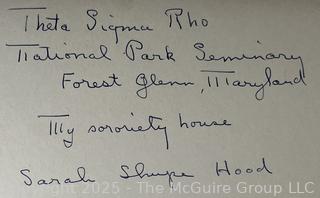 Theta Sigma Rho
National Park Seminary
Forest Glenn, Maryland
My sororiety house
Sarah Shupe Hood
Copyright 2025 - The McGuire Group LLC